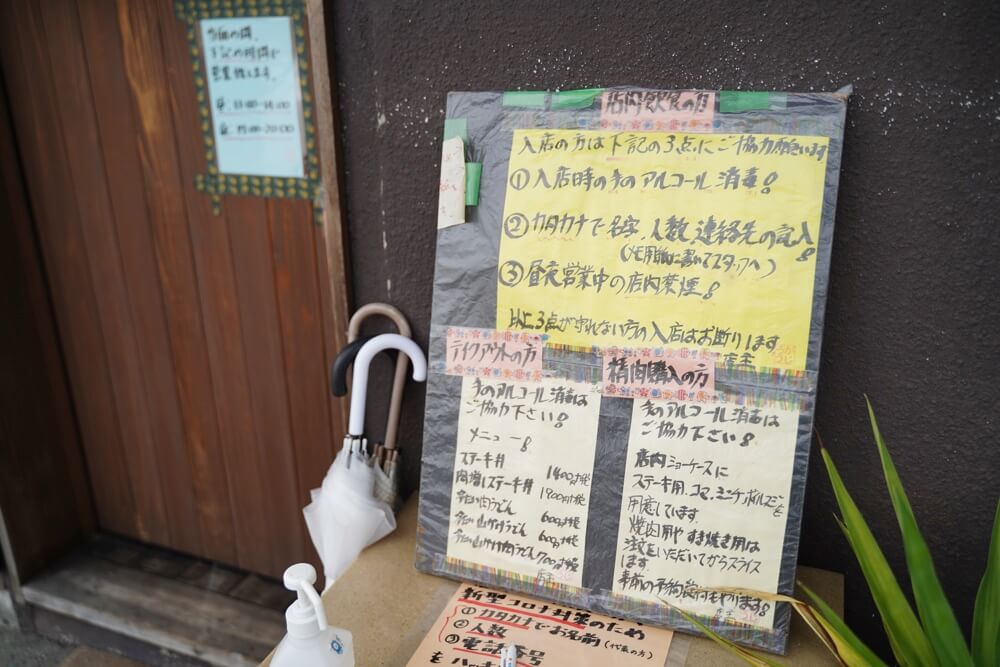 下記の時間で
営業致します。
昼 11:00-14:00
17:00-20:00
店内飲食の方
入店の方は下記の3点にご協力願います
①入店時の手のアルコール消毒!
②カタカナで名字、人数、連絡先の記入!
(メモ用紙に書いてスタッフへ)
③昼夜営業中の店内禁煙!
以上3点が守れない方の入店はお断りします
店主
テイクアウトの方
手のアルコール消毒は
ご協力下さい!
メニュー!
ステーキ丼 1400円+税
肉増しステーキ丼 1900円+税
冷たい肉うどん 600円+税
冷たい山かけうどん 600円+税
冷たい山かけ肉うどん 700円+税
店主
精肉購入の方
手のアルコール消毒は
ご協力下さい!
店内ショーケースに
ステーキ用、コマ、ミンチ、ホルモンを
用意しています。
焼肉用やすき焼き用は
注文をいただいてからスライス
します。
事前の予約受付もやります!
店主
新型コロナ対策のため
①カタカナでお名前(代表の方)
②人数
③電話番号
を